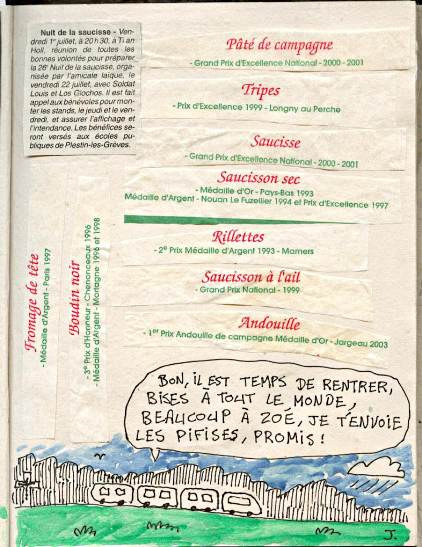 Nuit de la saucisse - Ven-
dredi 1er juillet, à 20 h 30, à Ti an
Holl, réunion de toutes les
bonnes volontés pour préparer
la 26e Nuit de la saucisse, orga-
nisée par l'amicale laïque, le
vendredi 22 juillet, avec Soldat
Louis et Los Glochos. Il est fait
appel aux bénévoles pour mon-
ter les stands, le jeudi et le ven-
dredi, et assurer l'affichage et
l'intendance. Les bénéfices se-
ront versés aux écoles pu-
bliques de Plestin-les-Grèves.
Pâté de campagne
- Grand Prix d'Excellence National - 2000 - 2001
Tripes
- Prix d'Excellence 1999 - Longny au Perche
Saucisse
- Grand Prix d'Excellence National - 2000 - 2001
Saucisson sec
- Médaille d'Or - Pays-Bas 1993
Médaille d'Argent - Nouan Le Fuzelier 1994 et Prix d'Excellence 1997
Rillettes
- 2e Prix Médaille d'Argent 1993 - Mamers
Saucisson à l'ail
- Grand Prix National - 1999
Andouille
- 1er Prix Andouille de campagne Médaille d'Or - Jargeau 2003
Fromage de tête
- Médaille d'Argent - Paris 1997
Boudin noir
- 3e Prix d'Honneur - Chenonceaux 1996
- Médaille d'Argent - Mortagne 1996 et 1998
BON, IL EST TEMPS DE RENTRER,
BISES À TOUT LE MONDE,
BEAUCOUP À ZOÉ, JE T'ENVOIE
LES PIFISES, PROMIS !
J.